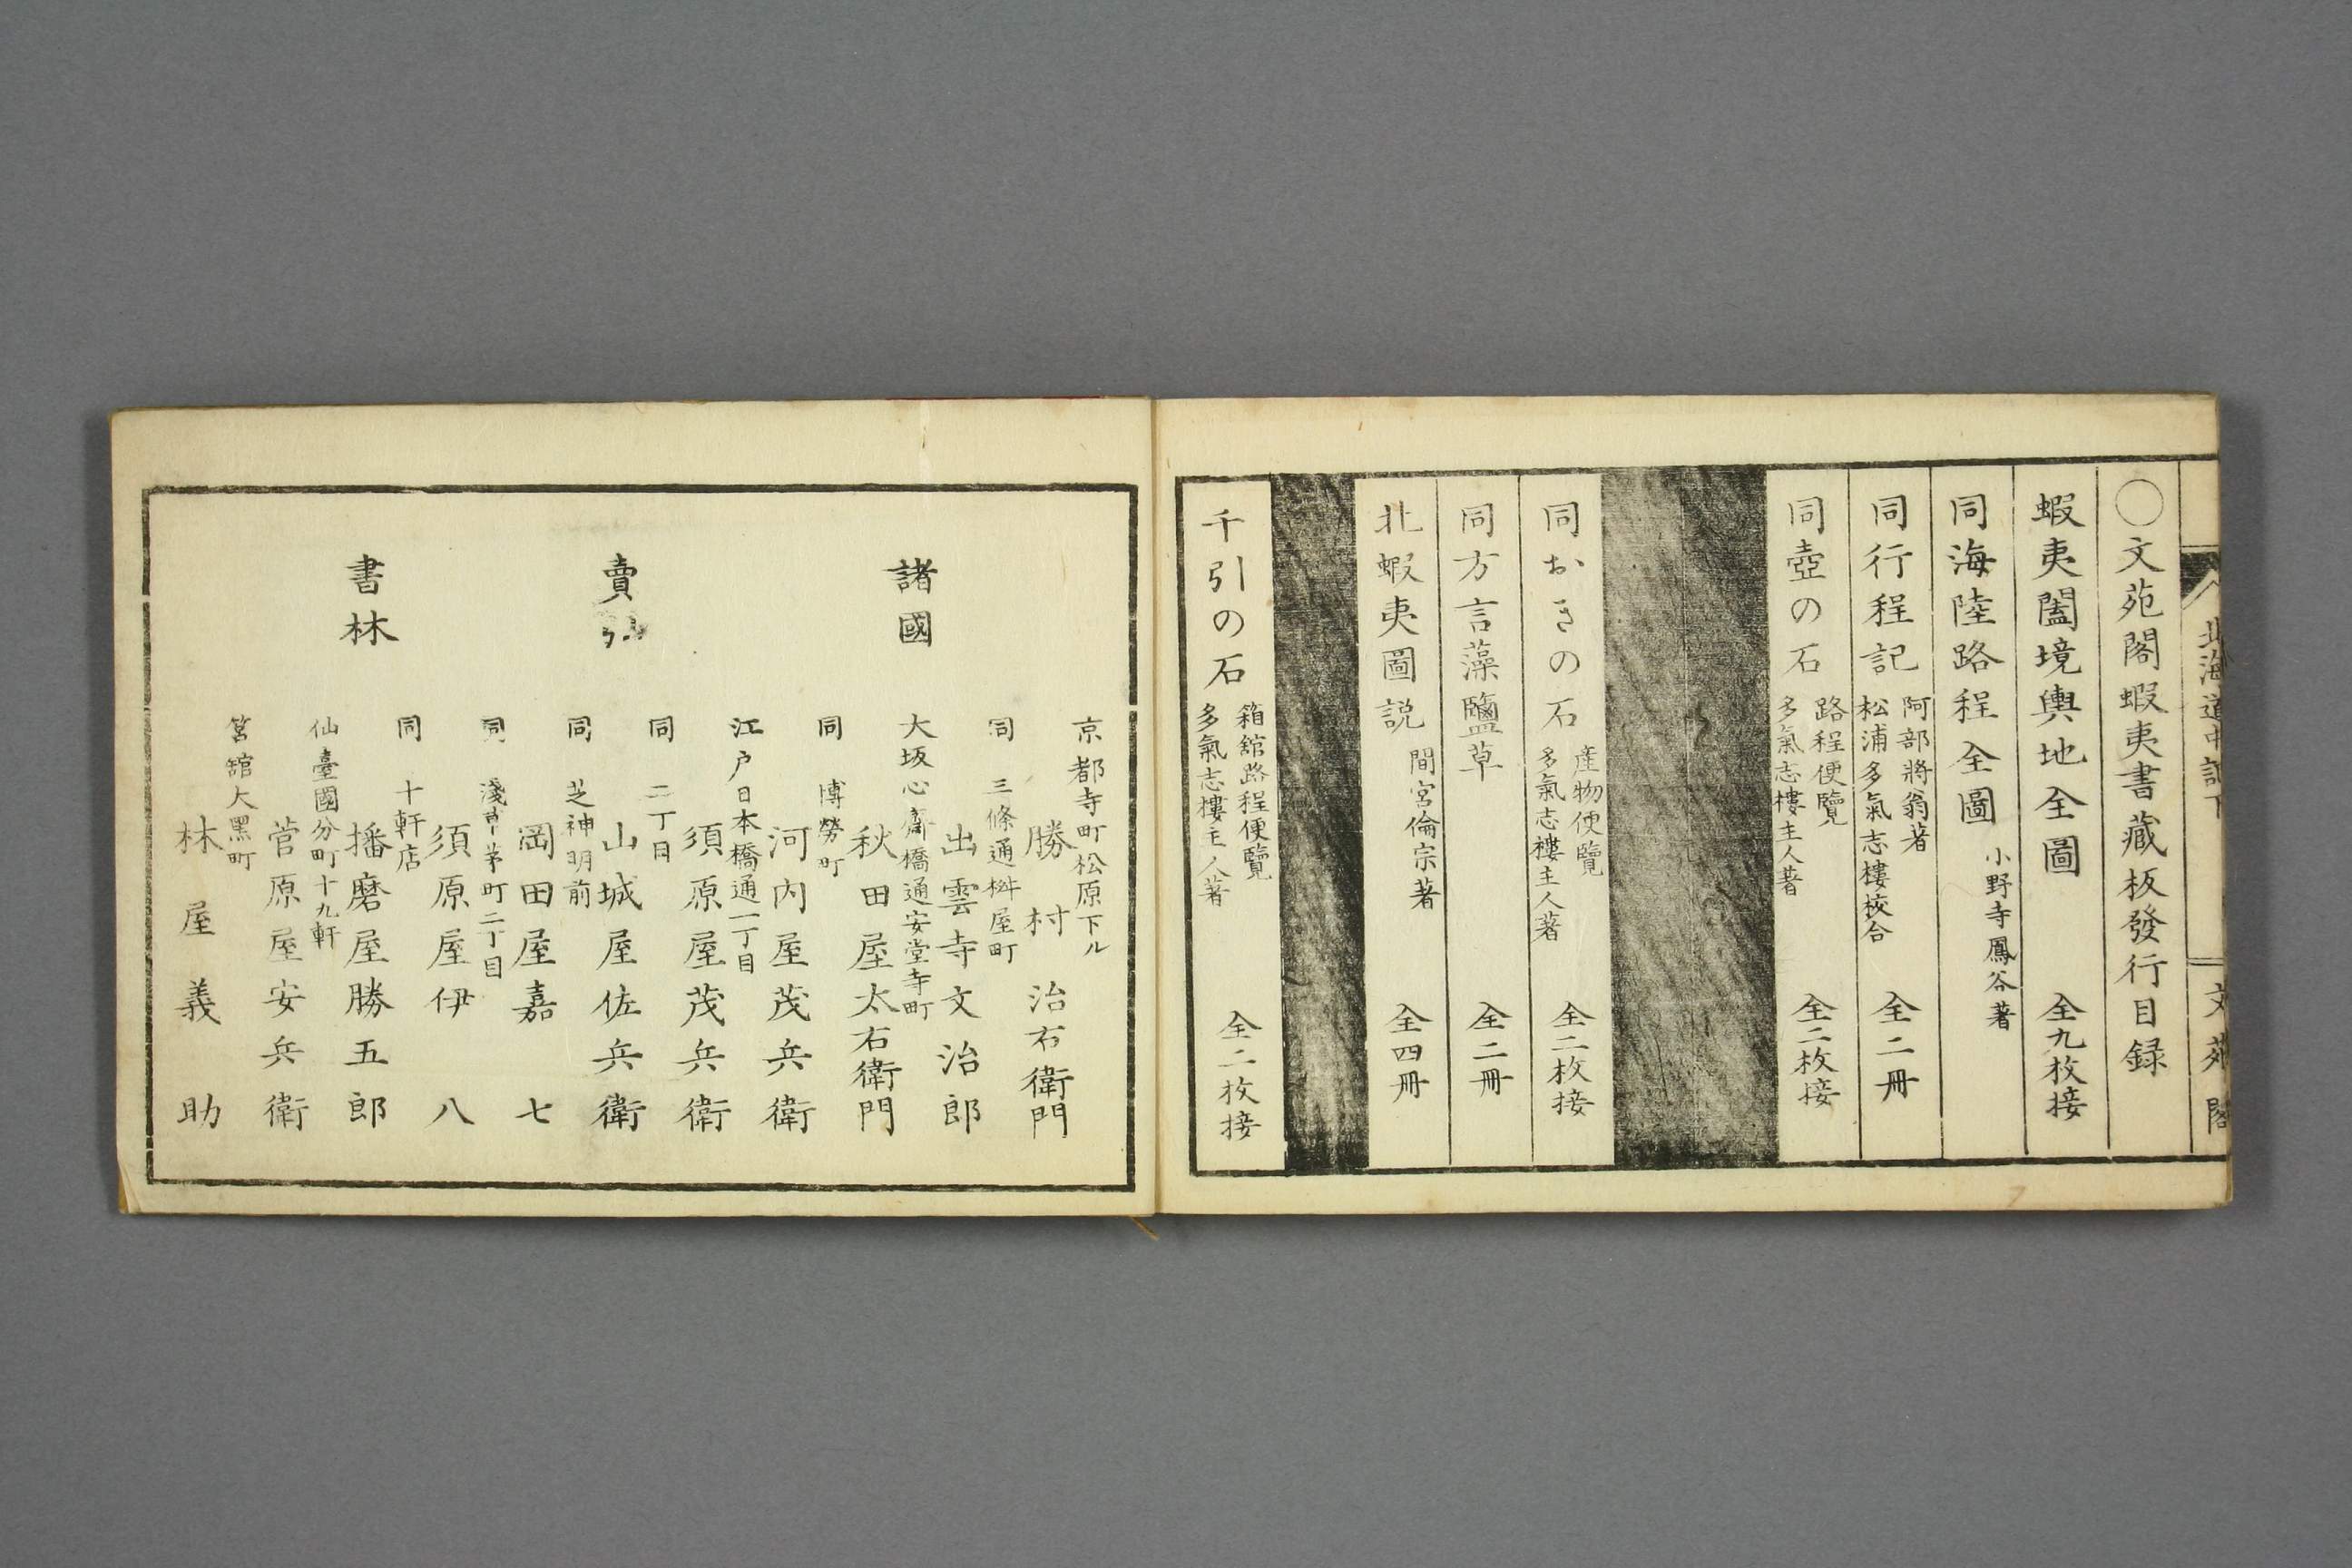 北海道中記下
文苑閣
〇文苑閣蝦夷書藏板發行目録
蝦夷闔境輿地全圖 全九枚接
同海陸路程全圖 小野寺鳳谷著
同行程記 阿部將翁著 松浦多氣志樓校合 全二冊
同壺の石 路程便覽 多氣志樓主人著 全二枚接
同おきの石 産物便覽 多氣志樓主人著 全二枚接
同方言藻鹽草 全二冊
北蝦夷圖説 間宮倫宗著 全四冊
千引の石 箱舘路程便覽 多氣志樓主人著 全二枚接
諸國
賣
書林
京都寺町松原下ル
勝村治右衛門
同 三條通桝屋町
出雲寺文治郎
大坂心齋橋通安堂寺町
秋田屋太右衛門
同 博勞町
河内屋茂兵衛
江戸日本橋通一丁目
須原屋茂兵衛
同 二丁目
山城屋佐兵衛
同 芝神明前
岡田屋嘉七
同 淺草茅町二丁目
須原屋伊八
同 十軒店
播磨屋勝五郎
仙臺國分町十九軒
菅原屋安兵衛
筥舘大黑町
林屋義助